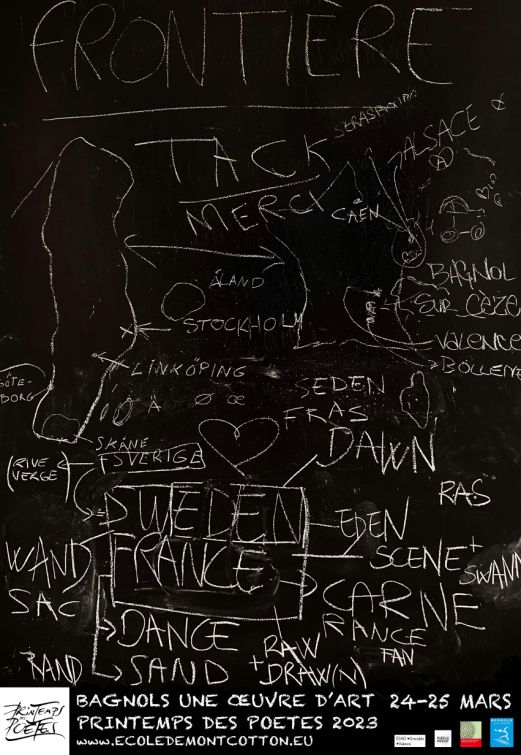 FRONTIÈRE
STRASBOURG
ALSACE
TACK
MERCI
CAEN
ÅLAND
BAGNOL
SUR CEZE
STOCKHOLM
VALENCE
BOLLENE
LINKÖPING
GÖTE-
BORG
SEDEN
Ö Ä Ø Œ
FRAS
SKÅNE
SVERIGE
DAWN
(RIVE
VERGE)
RAS
SWEDEN
EDEN
WAND
FRANCE
SCENE +
SWANN
SAC
CARNE
DANCE
RANCE
RAW
FAN
RAND
SAND
+ DRAW(N)
PRINTEMPS
DES
POETES
BAGNOLS UNE ŒUVRE D'ART 24-25 MARS
PRINTEMPS DES POETES 2023
WWW.ECOLEDEMONTCOTTON.EU